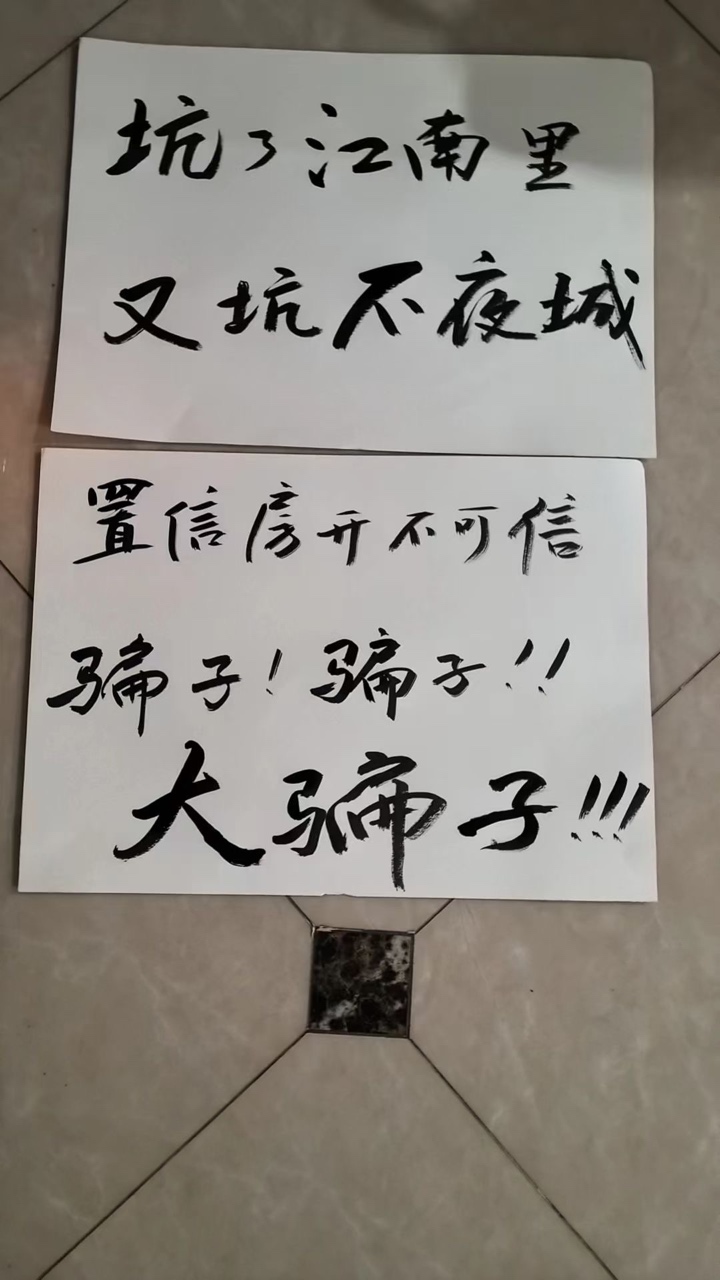 坑了江南里
又坑不夜城
置信房开不可信
骗子！骗子！！
大骗子！！！